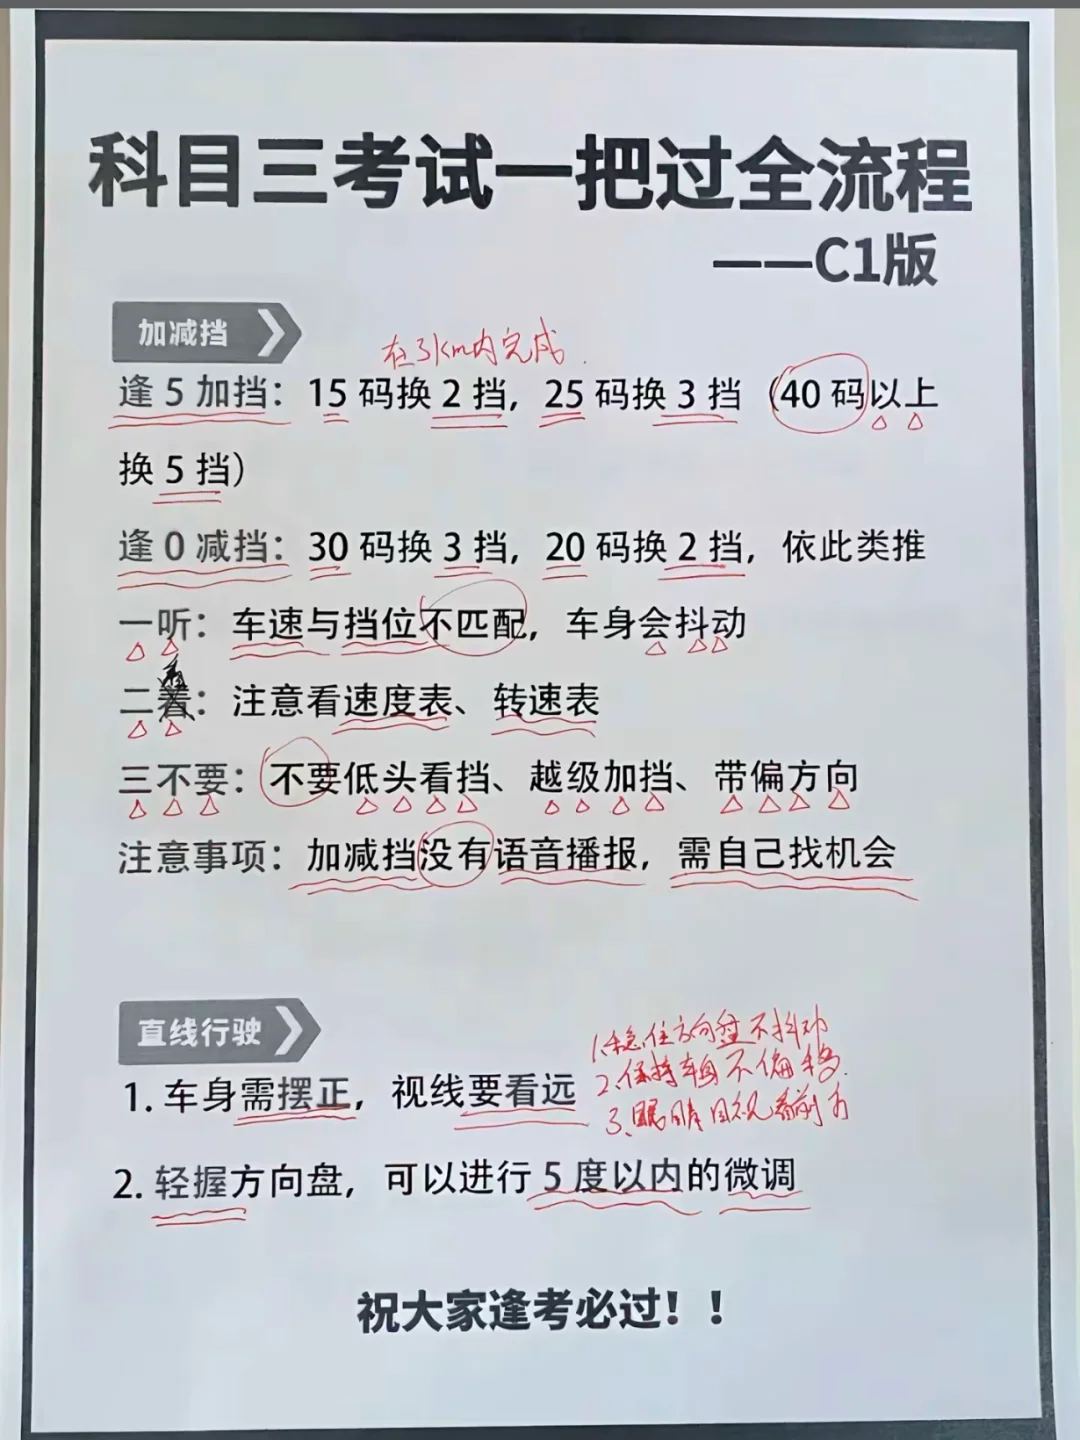 科目三考试一把过全流程
——C1版
加减挡
在3km内完成.
逢5加挡：15码换2挡，25码换3挡（40码以上
换5挡）
逢0减挡：30码换3挡，20码换2挡，依此类推
一听：车速与挡位不匹配，车身会抖动
看
二着：注意看速度表、转速表
三不要：不要低头看挡、越级加挡、带偏方向
注意事项：加减挡没有语音播报，需自己找机会
直线行驶
1.稳住方向盘不抖动
2.保持车身不偏移.
3.眼睛目视看前方
1. 车身需摆正，视线要看远
2. 轻握方向盘，可以进行5度以内的微调
祝大家逢考必过！！